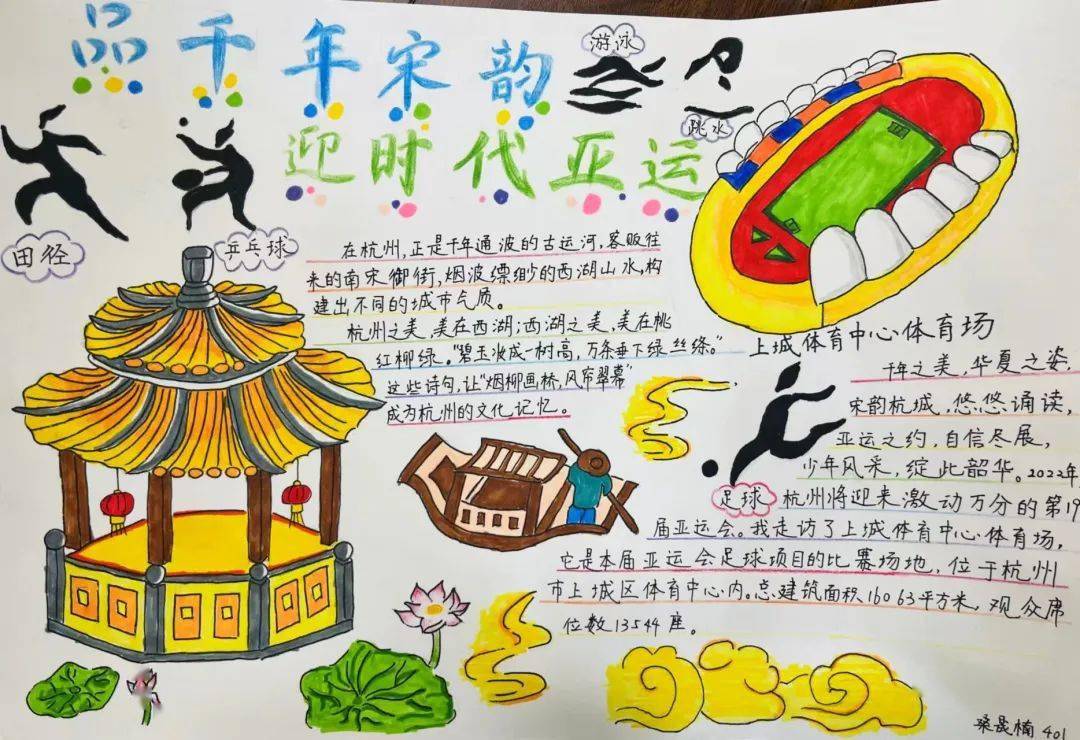 品千年宋韵
迎时代亚运
游泳
跳水
田径
乒乓球
在杭州,正是千年通波的古运河,客贩往
来的南宋御街,烟波缥缈的西湖山水,构
建出不同的城市气质。
杭州之美,美在西湖;西湖之美,美在桃
红柳绿。“碧玉妆成一树高,万条垂下绿丝绦。”
这些诗句,让“烟柳画桥,风帘翠幕”
成为杭州的文化记忆。
上城体育中心体育场
千年之美,华夏之姿,
宋韵杭城,悠悠诵读,
亚运之约,自信尽展,
少年风采,绽此韶华。2022年,
足球
杭州将迎来激动万分的第19
届亚运会。我走访了上城体育中心体育场,
它是本届亚运会足球项目的比赛场地,位于杭州
市上城区体育中心内。总建筑面积16063平方米,观众席
位数13544座。
桑晟楠 401